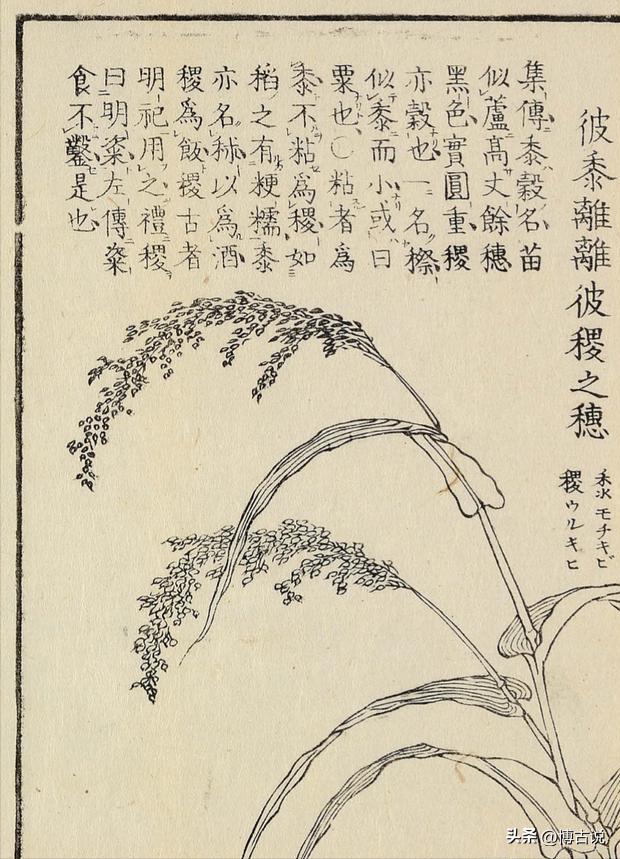 彼黍離離彼稷之穗
黍モチキビ
稷ウルキヒ
集傳黍穀名苗
似蘆髙丈餘穗
黑色實圓重稷
亦穀也一名穄
似黍而小或曰
粟也〇粘者爲
黍不粘爲稷如
稻之有粳糯黍
亦名秫以爲酒
稷爲飯稷古者
明祀用之禮稷
曰明粢左傳粢
食不鑿是也
头条 @博古说